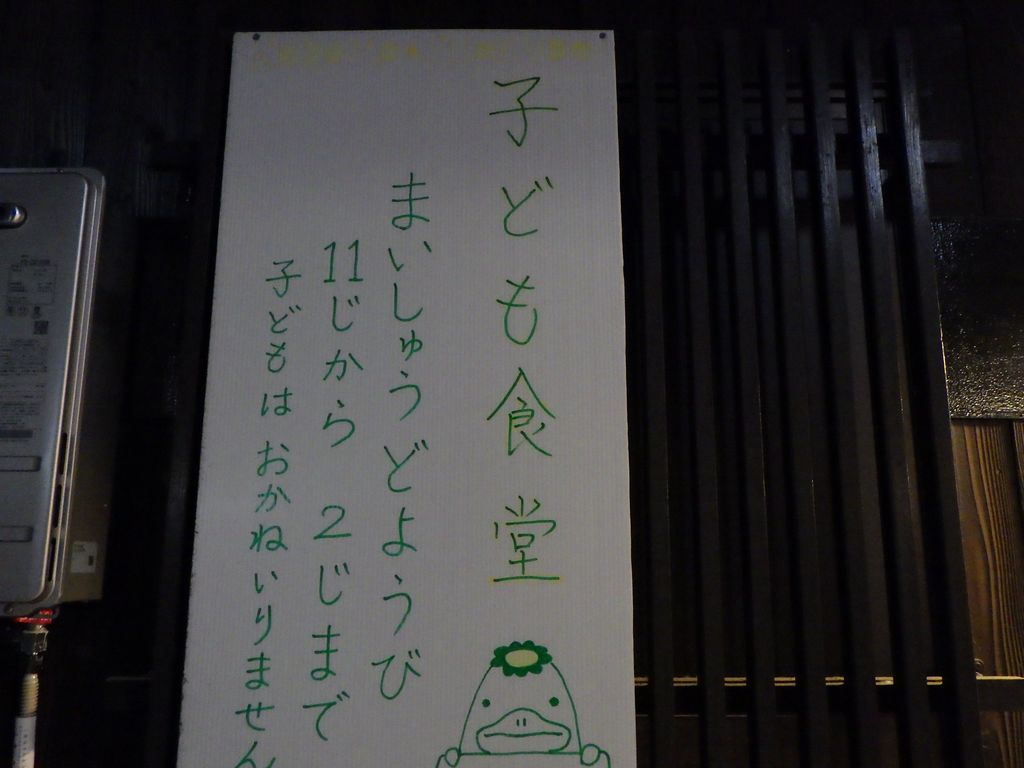 子ども食堂
まいしゅうどようび
11じから 2じまで
子どもは おかねいりません